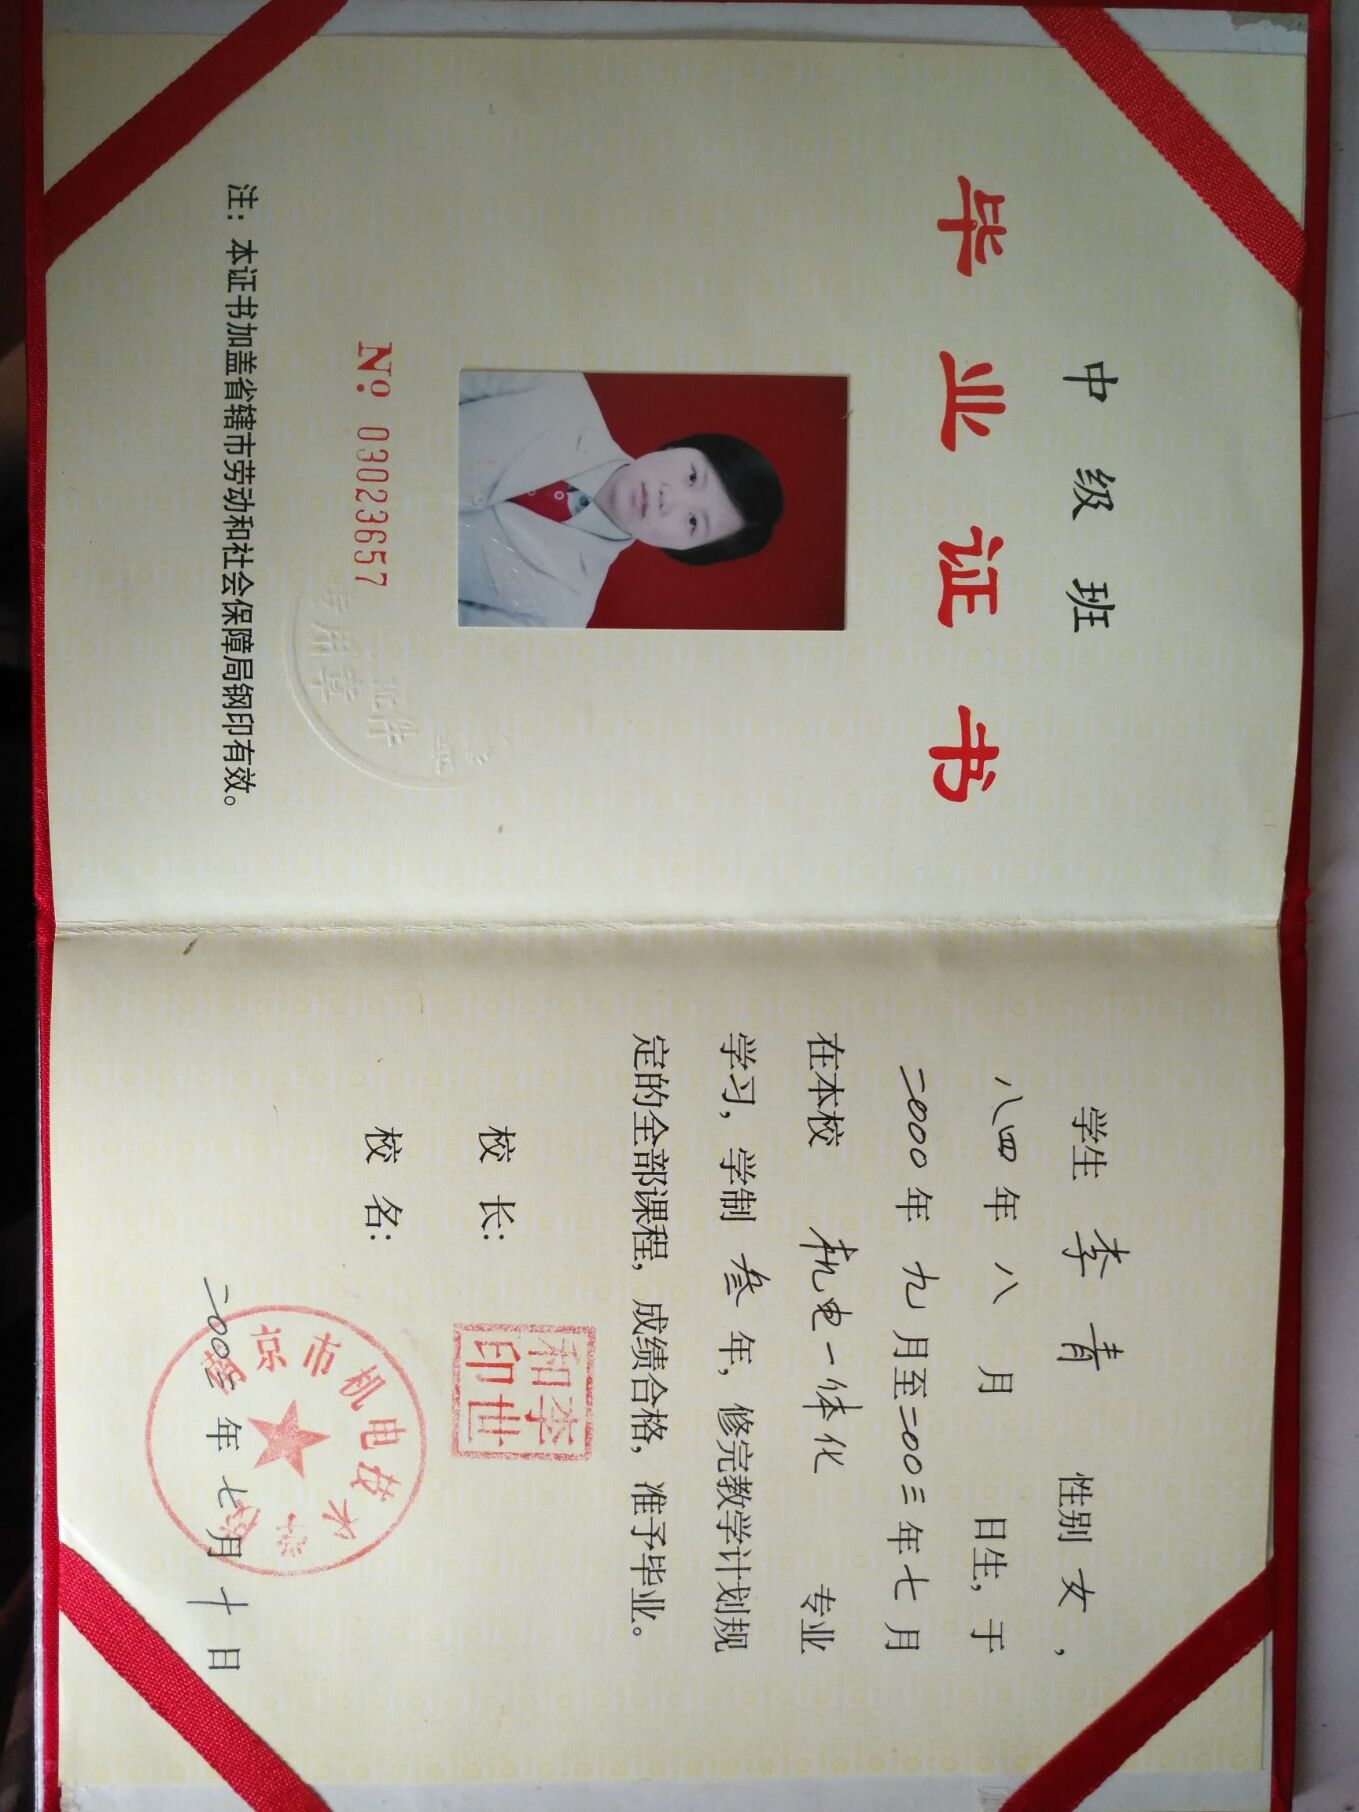 中级班
毕业证书
№ 03023657
注：本证书加盖省辖市劳动和社会保障局钢印有效。
专用章
学生 李青 性别 女，
八四年八月 日生，于
二000年九月至二00三年七月
在本校 机电一体化 专业
学习，学制 叁 年，修完教学计划规
定的全部课程，成绩合格，准予毕业。
校长：
李世和印
校名：
京市机电技术学校
二00三年七月十日